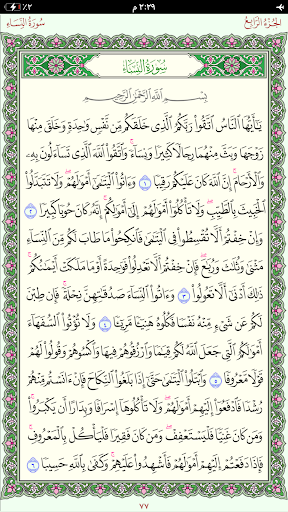 ٪٢ ٢:٢٩ م
سورة النساء الجزء الرابع
سورة النساء
بسم الله الرحمن الرحيم
يَٰٓأَيُّهَا ٱلنَّاسُ ٱتَّقُوا۟ رَبَّكُمُ ٱلَّذِى خَلَقَكُم مِّن نَّفْسٍ وَٰحِدَةٍ وَخَلَقَ مِنْهَا
زَوْجَهَا وَبَثَّ مِنْهُمَا رِجَالًا كَثِيرًا وَنِسَآءً وَٱتَّقُوا۟ ٱللَّهَ ٱلَّذِى تَسَآءَلُونَ بِهِۦ
وَٱلْأَرْحَامَ إِنَّ ٱللَّهَ كَانَ عَلَيْكُمْ رَقِيبًا ١ وَءَاتُوا۟ ٱلْيَتَٰمَىٰٓ أَمْوَٰلَهُمْ وَلَا تَتَبَدَّلُوا۟
ٱلْخَبِيثَ بِٱلطَّيِّبِ وَلَا تَأْكُلُوٓا۟ أَمْوَٰلَهُمْ إِلَىٰٓ أَمْوَٰلِكُمْ إِنَّهُۥ كَانَ حُوبًا كَبِيرًا ٢
وَإِنْ خِفْتُمْ أَلَّا تُقْسِطُوا۟ فِى ٱلْيَتَٰمَىٰ فَٱنكِحُوا۟ مَا طَابَ لَكُم مِّنَ ٱلنِّسَآءِ
مَثْنَىٰ وَثُلَٰثَ وَرُبَٰعَ فَإِنْ خِفْتُمْ أَلَّا تَعْدِلُوا۟ فَوَٰحِدَةً أَوْ مَا مَلَكَتْ أَيْمَٰنُكُمْ
ذَٰلِكَ أَدْنَىٰٓ أَلَّا تَعُولُوا۟ ٣ وَءَاتُوا۟ ٱلنِّسَآءَ صَدُقَٰتِهِنَّ نِحْلَةً فَإِن طِبْنَ
لَكُمْ عَن شَىْءٍ مِّنْهُ نَفْسًا فَكُلُوهُ هَنِيٓـًٔا مَّرِيٓـًٔا ٤ وَلَا تُؤْتُوا۟ ٱلسُّفَهَآءَ
أَمْوَٰلَكُمُ ٱلَّتِى جَعَلَ ٱللَّهُ لَكُمْ قِيَٰمًا وَٱرْزُقُوهُمْ فِيهَا وَٱكْسُوهُمْ وَقُولُوا۟ لَهُمْ
قَوْلًا مَّعْرُوفًا ٥ وَٱبْتَلُوا۟ ٱلْيَتَٰمَىٰ حَتَّىٰٓ إِذَا بَلَغُوا۟ ٱلنِّكَاحَ فَإِنْ ءَانَسْتُم مِّنْهُمْ
رُشْدًا فَٱدْفَعُوٓا۟ إِلَيْهِمْ أَمْوَٰلَهُمْ وَلَا تَأْكُلُوهَآ إِسْرَافًا وَبِدَارًا أَن يَكْبَرُوا۟
وَمَن كَانَ غَنِيًّا فَلْيَسْتَعْفِفْ وَمَن كَانَ فَقِيرًا فَلْيَأْكُلْ بِٱلْمَعْرُوفِ
فَإِذَا دَفَعْتُمْ إِلَيْهِمْ أَمْوَٰلَهُمْ فَأَشْهِدُوا۟ عَلَيْهِمْ وَكَفَىٰ بِٱللَّهِ حَسِيبًا ٦
٧٧